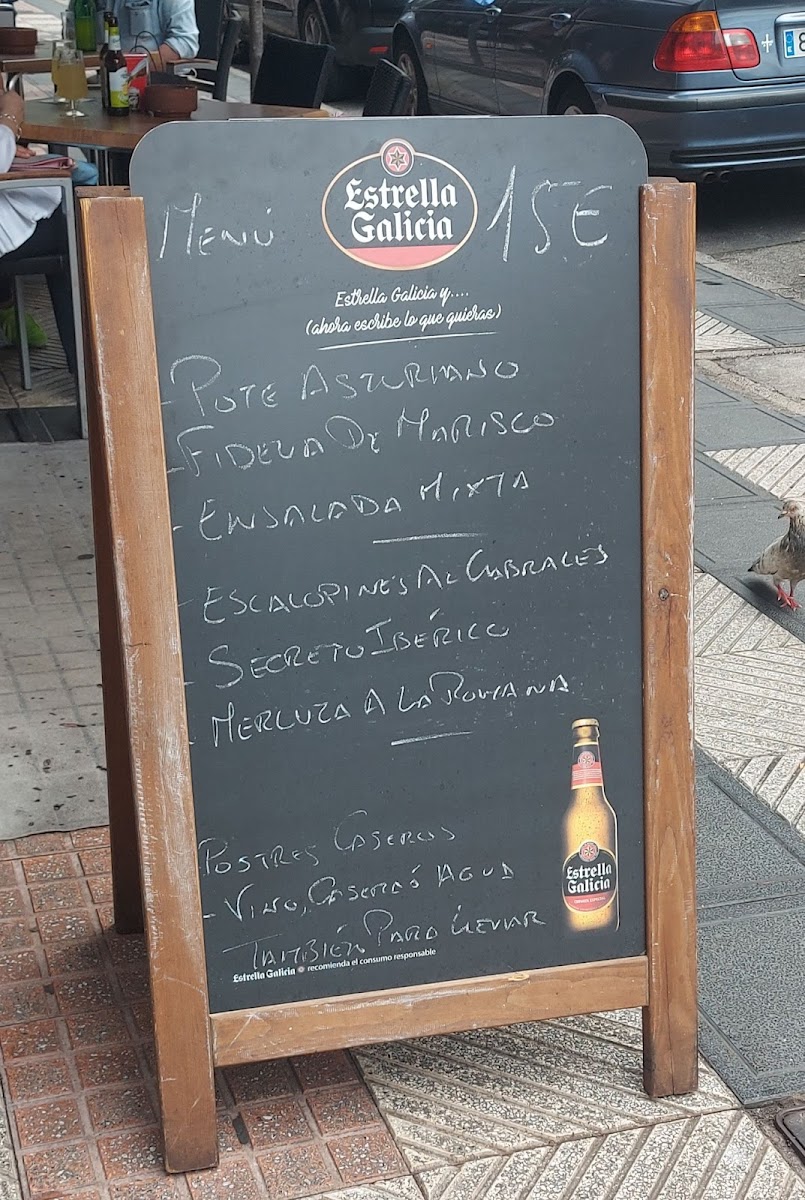 Menú 15€
Estrella Galicia
Estrella Galicia y....
(ahora escribe lo que quieras)
- POTE ASTURIANO
- FIDEUA DE MARISCO
- ENSALADA MIXTA
- ESCALOPINES AL CABRALES
- SECRETO IBÉRICO
- MERLUZA A LA ROMANA
POSTRES CASEROS
- VINO, CASERA Ó AGUA
TAMBIÉN PARA LLEVAR
Estrella Galicia
Estrella Galicia recomienda el consumo responsable